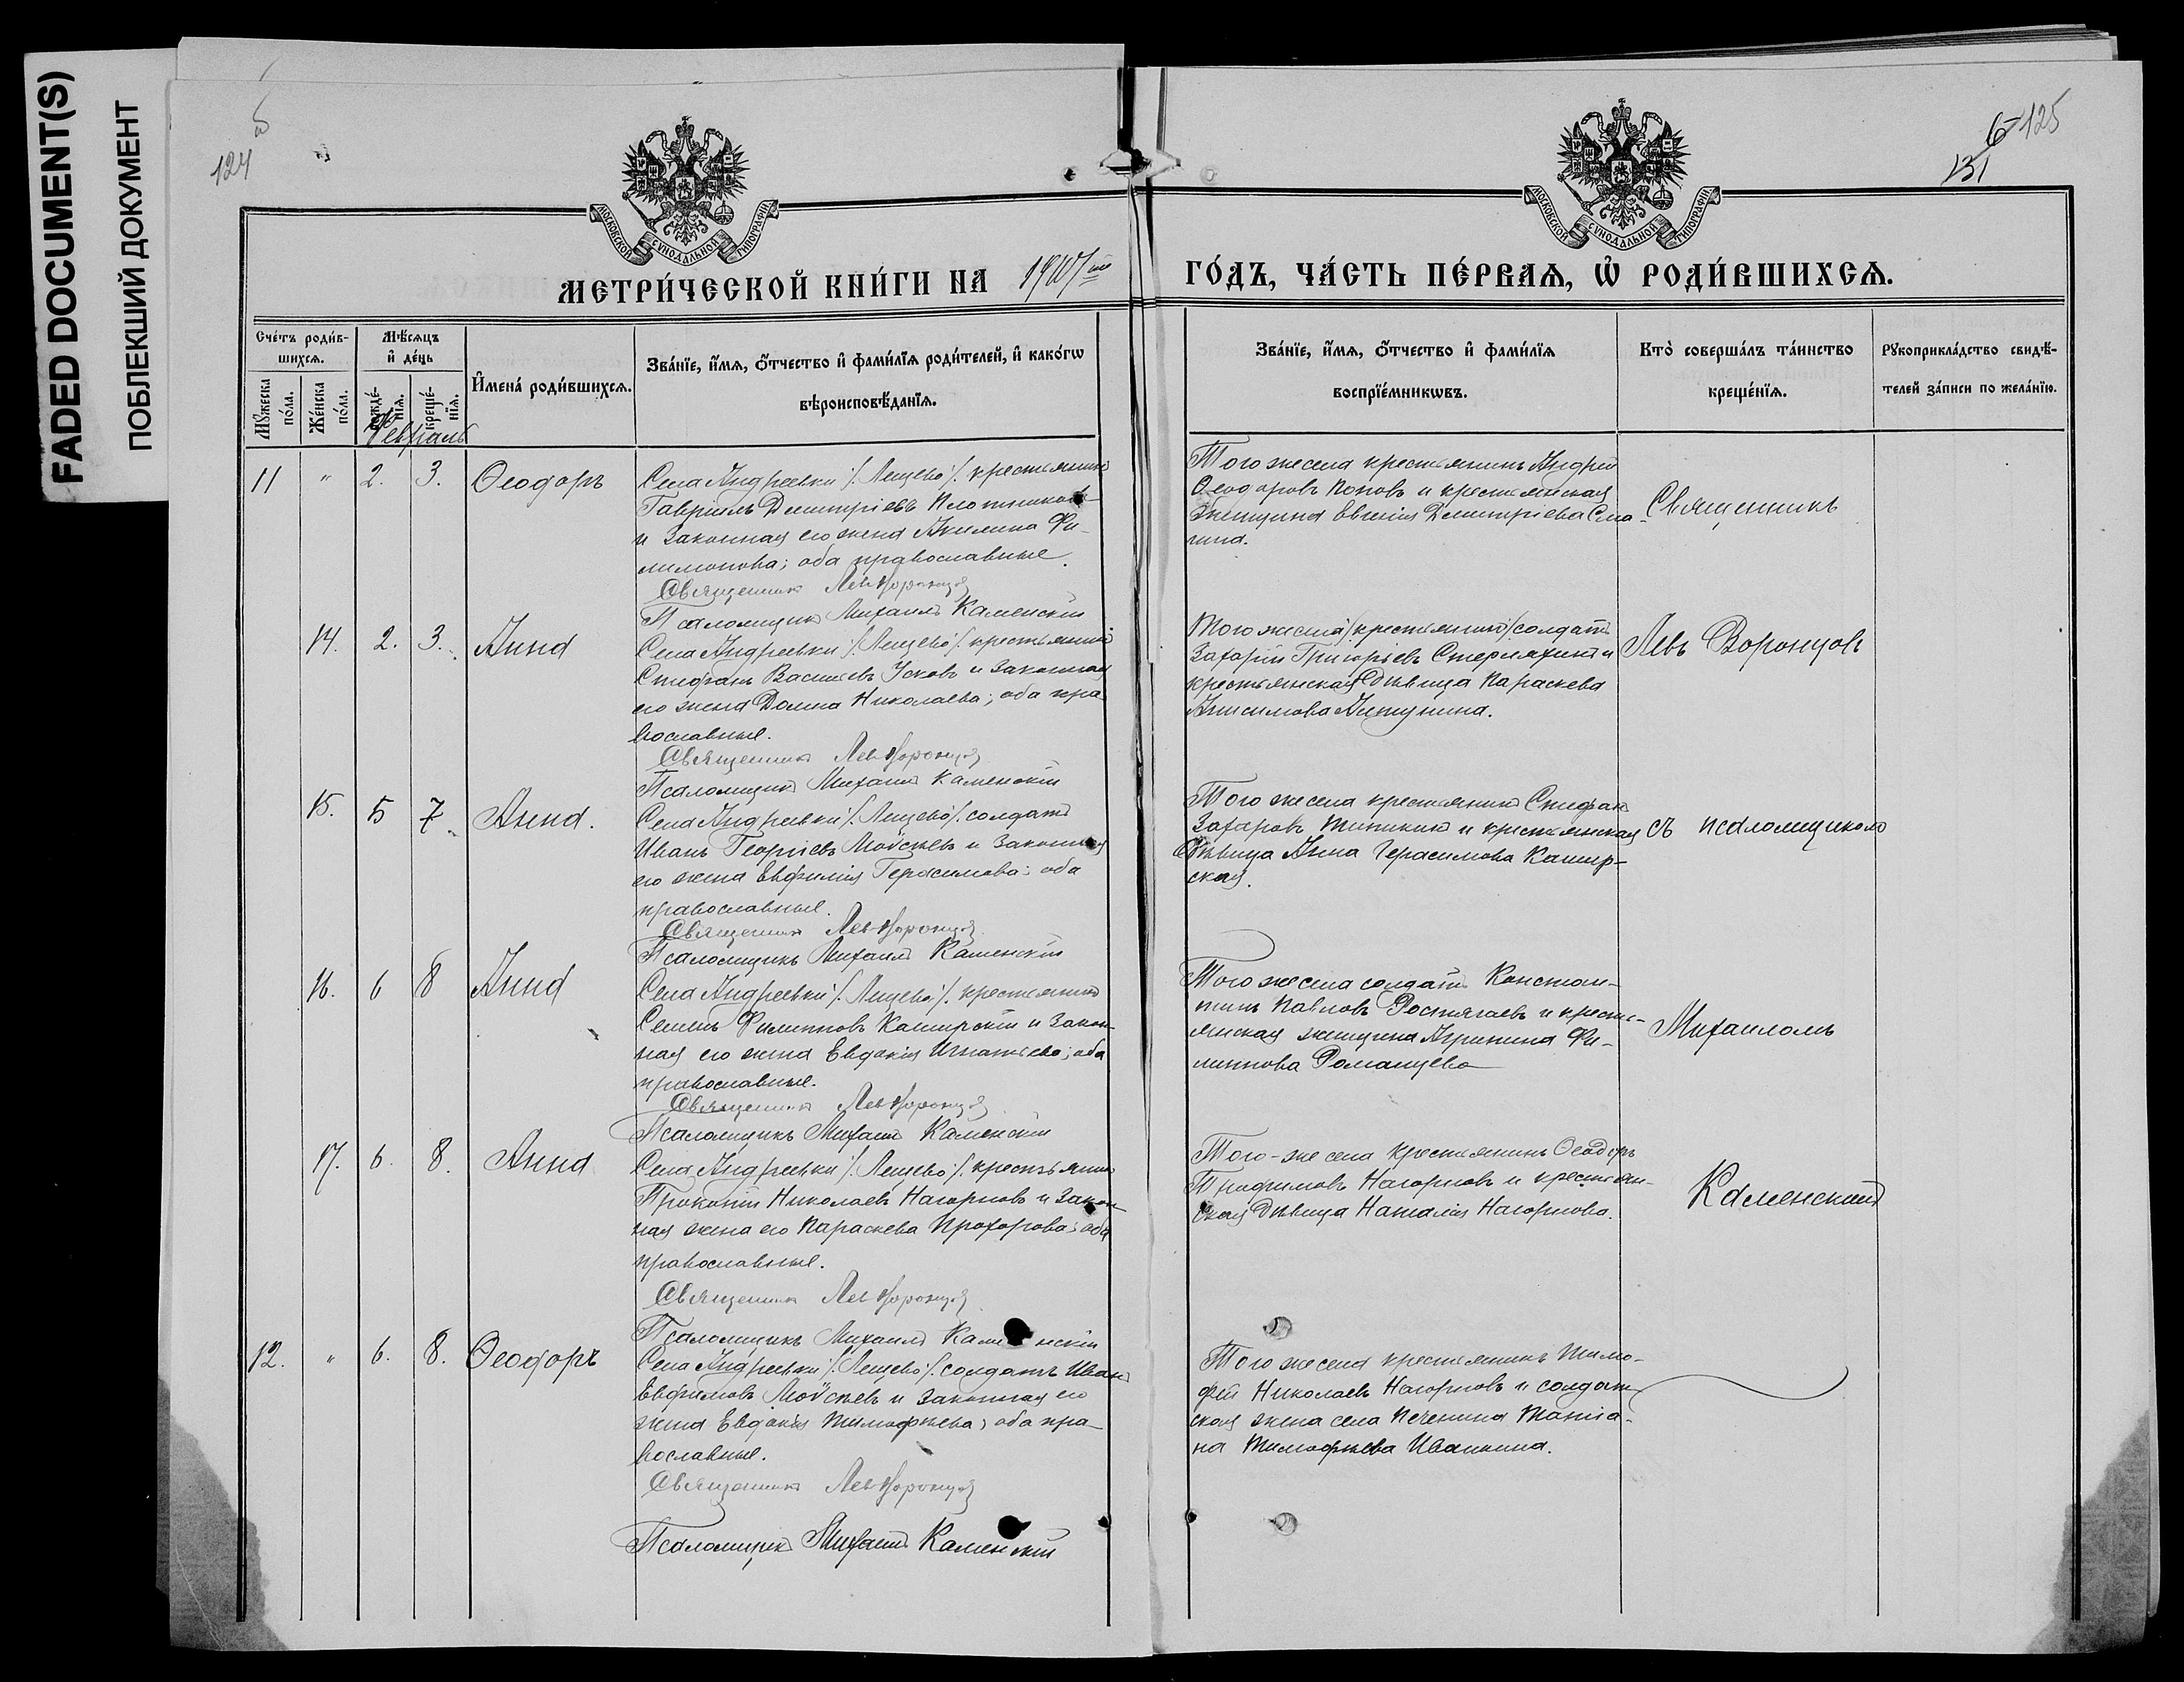 FADED DOCUMENT(S)
ПОБЛЕКШИЙ ДОКУМЕНТ
124
125
131
МОСКОВСКОЙ СУНОДАЛЬНОЙ ТИПОГРАФІИ
МОСКОВСКОЙ СУНОДАЛЬНОЙ ТИПОГРАФІИ
МЕТРИ́ЧЕСКОЙ КНИ́ГИ НА 1907ый
ГО́ДЪ, ЧА́СТЬ ПЕ́РВАѦ, Ѡ҆ РОДИ́ВШИХСѦ.
Сче́тъ роди́в-
шихсѧ.
Мѣ́сѧцъ
и҆ де́нь
Мꙋ́жеска
по́ла.
Же́нска
по́ла.
рожде́-
нїѧ.
креще́-
нїѧ.
И҆мена̀ роди́вшихсѧ.
Зва́нїе, и҆́мѧ, ѻ҆́тчество и҆ фами́лїѧ роди́телей, и҆ како́гѡ
вѣроисповѣ́данїѧ.
Зва́нїе, и҆́мѧ, ѻ҆́тчество и҆ фами́лїѧ
воспрїе́мникѡвъ.
Кто̀ соверша́лъ та́инство
креще́нїѧ.
Рꙋкоприкла́дство свидѣ́-
телей за́писи по жела́нїю.
Февраль
11 " 2. 3. Ѳеодоръ
Села Андреевки /. Лещево /. крестьянинъ
Гавріилъ Димитріевъ Плотниковъ
и законная его жена Акилина Фи-
лимонова; оба православные.
Священникъ Лев Воронцов
Псаломщикъ Михаилъ Каменскій
Того же села крестьянинъ Андрей
Ѳеодоровъ Поповъ и крестьянская
женщина Евгенія Димитріева Сма-
гина.
Священникъ
14. 2. 3. Анна
Села Андреевки /. Лещево /. крестьянинъ
Стефанъ Васильевъ Усковъ и законная
его жена Домна Николаева; оба пра-
вославные.
Священникъ Лев Воронцов
Псаломщикъ Михаилъ Каменскій
Того же села /крестьянинъ/ солдатъ
Захарій Григорьевъ Стерляхинъ и
крестьянская дѣвица Параскева
Анисимова
Левъ Воронцовъ
15. 5 7 Анна.
Села Андреевки /. Лещево /. солдатъ
Иванъ Георгіевъ Мойсѣевъ и законная
его жена Евфимія Герасимова; оба
православные.
Священникъ Лев Воронцов
Псаломщикъ Михаилъ Каменскій
Того же села крестьянинъ Стефан
Захаровъ и крестьянская
дѣвица Анна Герасимова Кашир-
ская.
съ псаломщиком
16. 6 8 Анна
Села Андреевки /. Лещево /. крестьянинъ
Семенъ Филипповъ Каширскій и закон-
ная его жена Евдокія Игнатьева; оба
православные.
Священникъ Лев Воронцов
Псаломщикъ Михаилъ Каменскій
Того же села солдатъ Констан-
тинъ Павловъ Ростягаевъ и кресть-
янская женщина Агрипина Фи-
липпова Романцева
Михаиломъ
17. 6. 8. Анна
Села Андреевки /. Лещево /. крестьянинъ
Прокопій Николаевъ Нагорновъ и закон-
ная жена его Параскева Прохорова; оба
православные.
Священникъ Лев Воронцов
Псаломщикъ Михаилъ Каменскій
Того-же села крестьянинъ Ѳеодоръ
Трофимовъ Нагорновъ и крестьян-
ская дѣвица Наталія Нагорнова.
Каменским
12. " 6. 8. Ѳеодоръ
Села Андреевки /. Лещево /. солдатъ Иванъ
Евфимовъ Мойсѣевъ и законная его
жена Евдокія Тимоѳѣева; оба пра-
вославные.
Священникъ Лев Воронцов
Псаломщикъ Михаилъ Каменскій
Того же села крестьянинъ Тимо-
фей Николаевъ Нагорновъ и солдат-
ская жена села Печенина Татіа-
на Тимофѣева Ивакина.